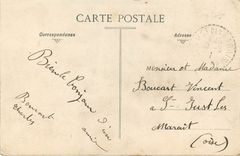 CARTE POSTALE
Correspondance
Adresse
Bien le bonjour d'un
ami
monsieur et Madame
Boucart Vincent
a St Just les
Marais
(oise)